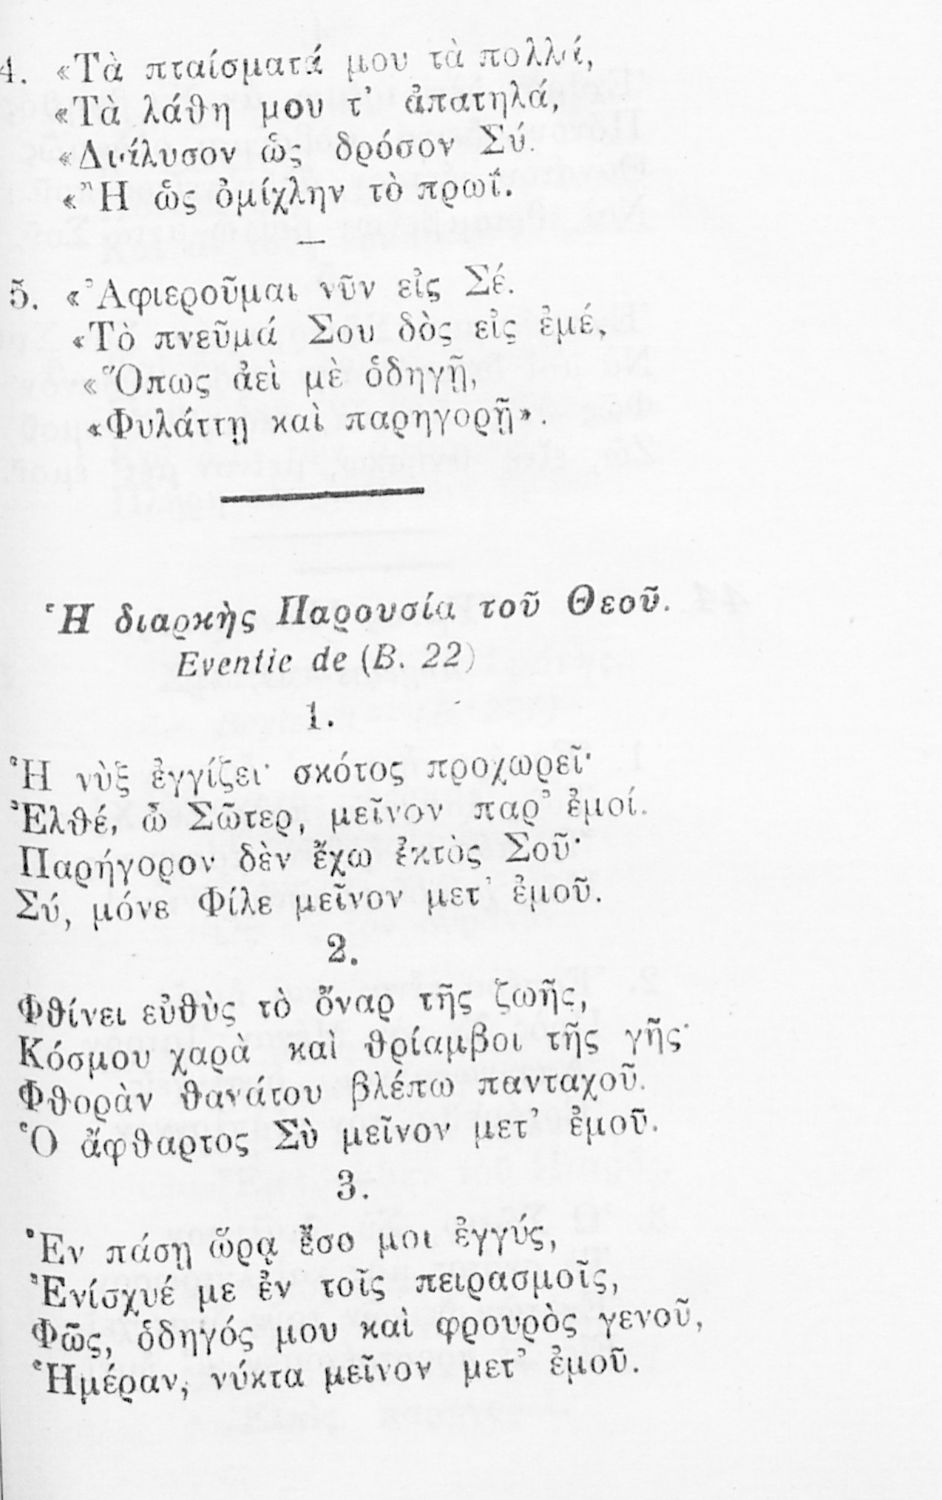 4. «Τὰ πταίσματά μου τὰ πολλά,
«Τὰ λάθη μου τ' ἀπατηλά,
«Διάλυσον ὡς δρόσον Σύ.
«Ἢ ὡς ὀμίχλην τὸ πρωΐ.
—
5. «Ἀφιεροῦμαι νῦν εἰς Σέ.
«Τὸ πνεῦμά Σου δὸς εἰς ἐμέ,
«Ὅπως ἀεὶ μὲ ὁδηγῇ,
«Φυλάττῃ καὶ παρηγορῇ».
Ἡ διαρκὴς Παρουσία τοῦ Θεοῦ.
Eventie de (B. 22)
1.
Ἡ νὺξ ἐγγίζει· σκότος προχωρεῖ·
Ἐλθέ, ὦ Σῶτερ, μεῖνον παρ' ἐμοί.
Παρήγορον δὲν ἔχω ἐκτὸς Σοῦ·
Σύ, μόνε Φίλε μεῖνον μετ' ἐμοῦ.
2.
Φθίνει εὐθὺς τὸ ὄναρ τῆς ζωῆς,
Κόσμου χαρὰ καὶ θρίαμβοι τῆς γῆς·
Φθορὰν θανάτου βλέπω πανταχοῦ.
Ὁ ἄφθαρτος Σὺ μεῖνον μετ' ἐμοῦ.
3.
Ἐν πάσῃ ὥρᾳ ἔσο μοι ἐγγύς,
Ἐνίσχυέ με ἐν τοῖς πειρασμοῖς,
Φῶς, ὁδηγός μου καὶ φρουρὸς γενοῦ,
Ἡμέραν, νύκτα μεῖνον μετ' ἐμοῦ.